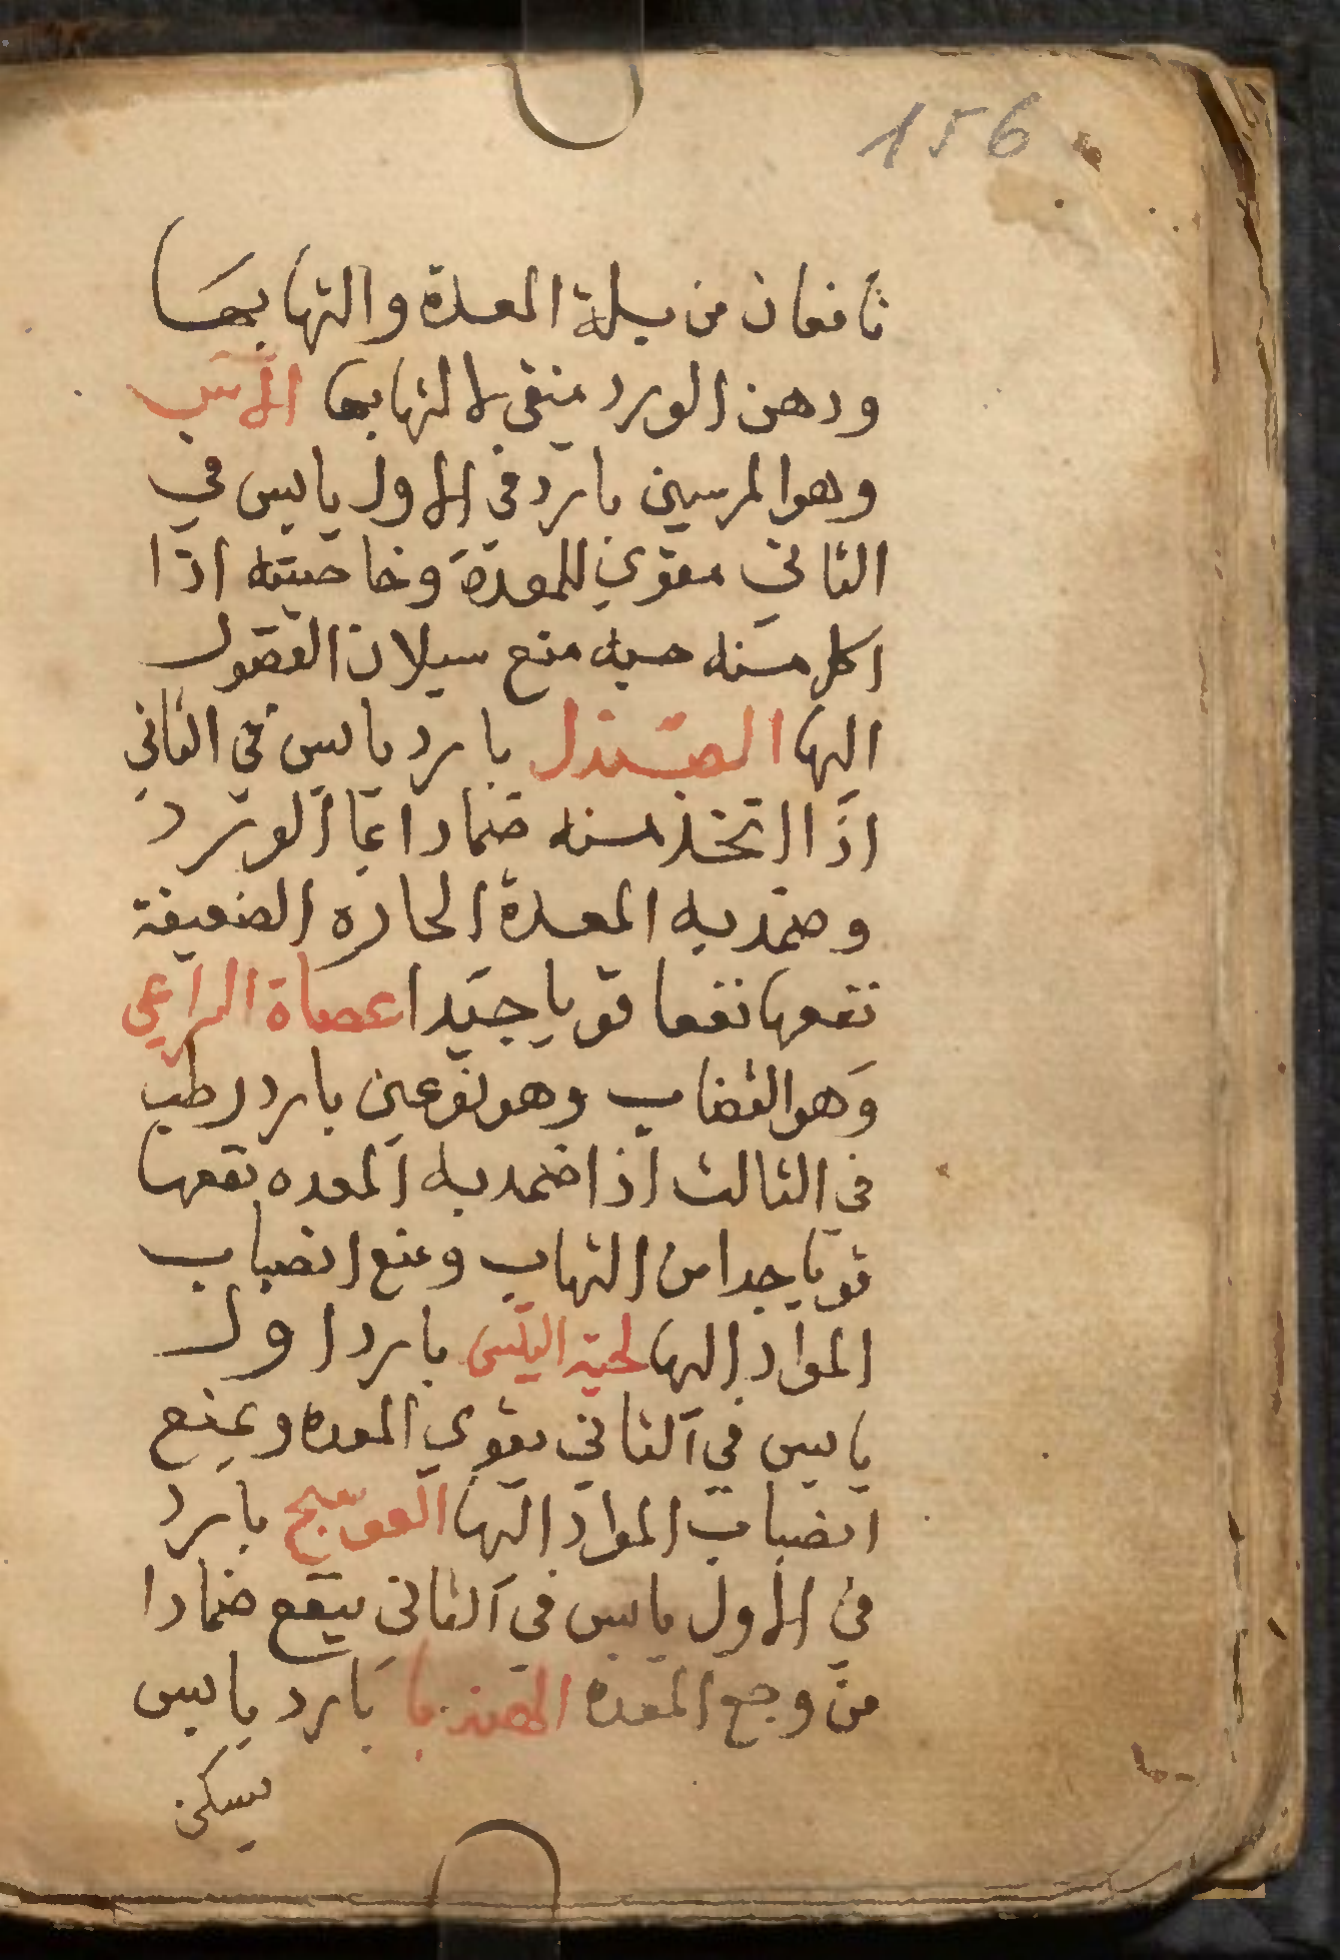 156
نافعان من بيلة المعدة والتهابها
ودهن الورد ينقي لالتهابها الاس
وهو المرسين بارد في الاول يابس في
الثاني مقوي للمعدة وخاصيته اذا
اكل منه حبه منع سيلان الفضول
اليها الصندل بارد يابس في الثاني
اذا اتخذ منه ضمادا بما الورد
وضمد به المعدة الحاره الضعيفة
نفعها نفعا قويا جيدا عصاة الراعي
وهو القضاب وهو نوعين بارد رطب
في الثالث اذا ضمد به المعده نفعها
قويا جدا من التهاب ومنع انصباب
المواد اليها لحية التيس بارد اول
يابس في الثاني يقوي المعده ويمنع
انصباب المواد اليها العوسج بارد
في الاول يابس في الثاني ينفع ضمادا
من وجع المعده الهندبا بارد يابس
يسكن